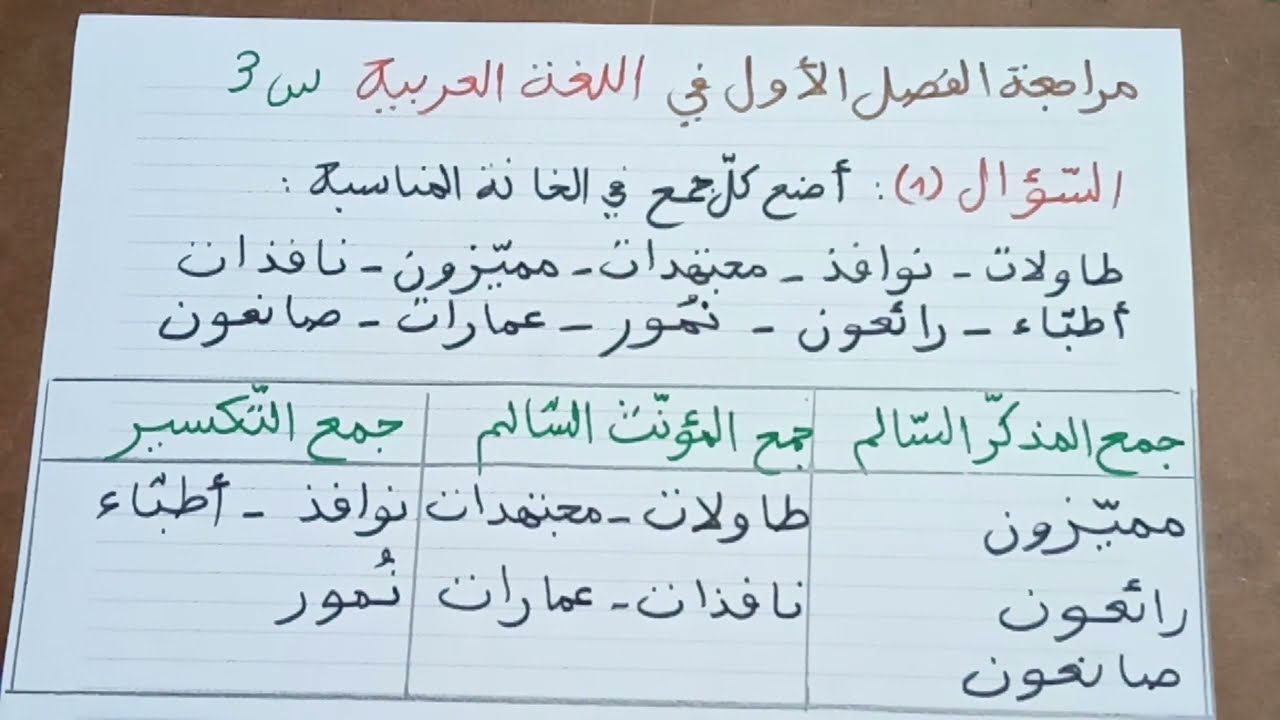 مراجعة الفصل الأول في اللغة العربية س3
السّؤال (1): أضع كلّ جمع في الخانة المناسبة:
طاولات - نوافذ - مجتهدات - مميّزون - نافذات
أطبّاء - رائعون - نُمور - عمارات - صانعون
جمع المذكّر السّالم جمع المؤنّث السّالم جمع التّكسير
مميّزون طاولات - مجتهدات نوافذ - أطبّاء
رائعون نافذات - عمارات نُمور
صانعون